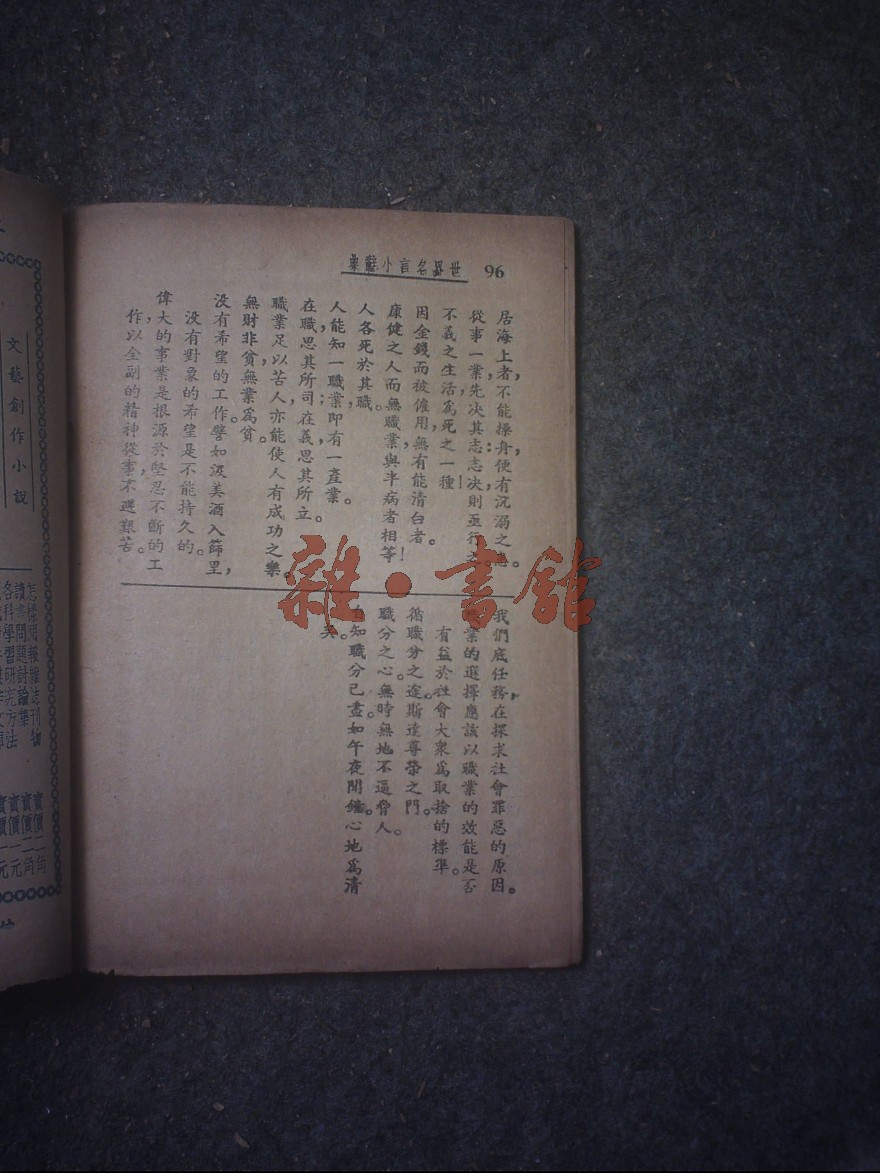 96
世界名言小辭典
居海上者，不能操身，便有沉溺之患。
從事一業，先決其志，志決則亟行之。
不義之生活爲死之一種！
因金錢而被僱用，無有能清白者。
康健之人而無職業，與半病者相等！
人各死於其職。
人能知一職業，即有一產業。
在職，思其所司；在義，思其所立。
職業足以苦人，亦能使人有成功之樂。
無財非貧，無業爲貧。
没有希望的工作，譬如汲美酒入篩里，
没有對象的希望是不能持久的。
偉大的事業是根源於堅忍不斷的工
作，以全副的精神從事，不避艱苦。
我們底任務，在探求社會罪惡的原因。
業的選擇應該以職業的效能是否
有益於社會大衆爲取捨的標準。
循職分之途，斯達尊榮之門。
職分之心，無時無地不逼脅人。
知職分已盡，如午夜聞鐘，心地爲清
雜·書館
文藝創作小說
怎樣閱報雜誌刊物 實價二角
讀書問題討論集 實價二角
各科學習研究方法 實價一元